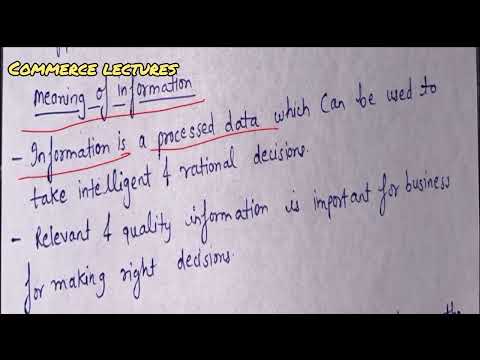 Commerce lectures
Meaning of information
- Information is a processed data which can be used to
take intelligent & rational decisions.
- Relevant & quality information is important for business
for making right decisions.